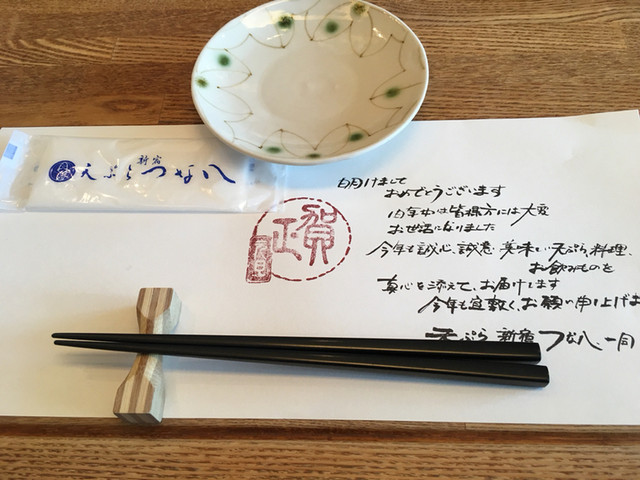 新宿
天ぷら つな八
明けまして
おめでとうございます
旧年中は皆様方には大変
お世話になりました
今年も誠心、誠意、美味しい天ぷら、料理、
お飲みものを
真心を添えて、お届けします
今年も宜敷く、お願い申し上げ
天ぷら 新宿 つな八 一同
賀正
元旦